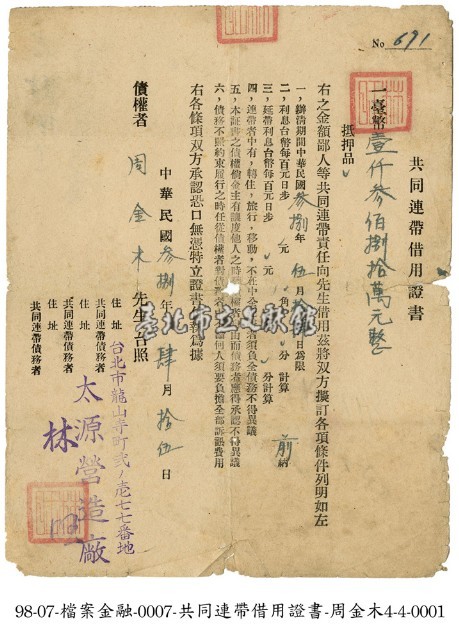 No 691
共同連帶借用證書
一臺幣壹仟參佰捌拾萬元整
抵押品
右之金額鄙人等共同連帶責任向先生借用茲將双方擬訂各項條件列明如左
一，辦清期間中華民國參捌年伍月拾 日為限
二，利息台幣每百元日步 元 角 分計算 前納
三，延帶利息台幣每百元日步 元 分計算
四，連帶者中有，轉住，旅行，移動，不在中 者須負全債務不得異議
五，本証書之債權倘金主有讓渡他人之時 債務者應得承認不得異議
六，債務不照約束履行之時任從債權者對債 何人須要負擔全部訴訟費用
右各條項双方承認恐口無憑特立證書 為據
中華民國參捌年肆月拾伍日
債權者 周金木先生台照
住址 台北市龍山寺町弍ノ壱七七番地
共同連帶債務者 太源營造廠
住址
共同連帶債務者 林
住址
共同連帶債務者
臺北市立文獻館
98-07-檔案金融-0007-共同連帶借用證書-周金木4-4-0001